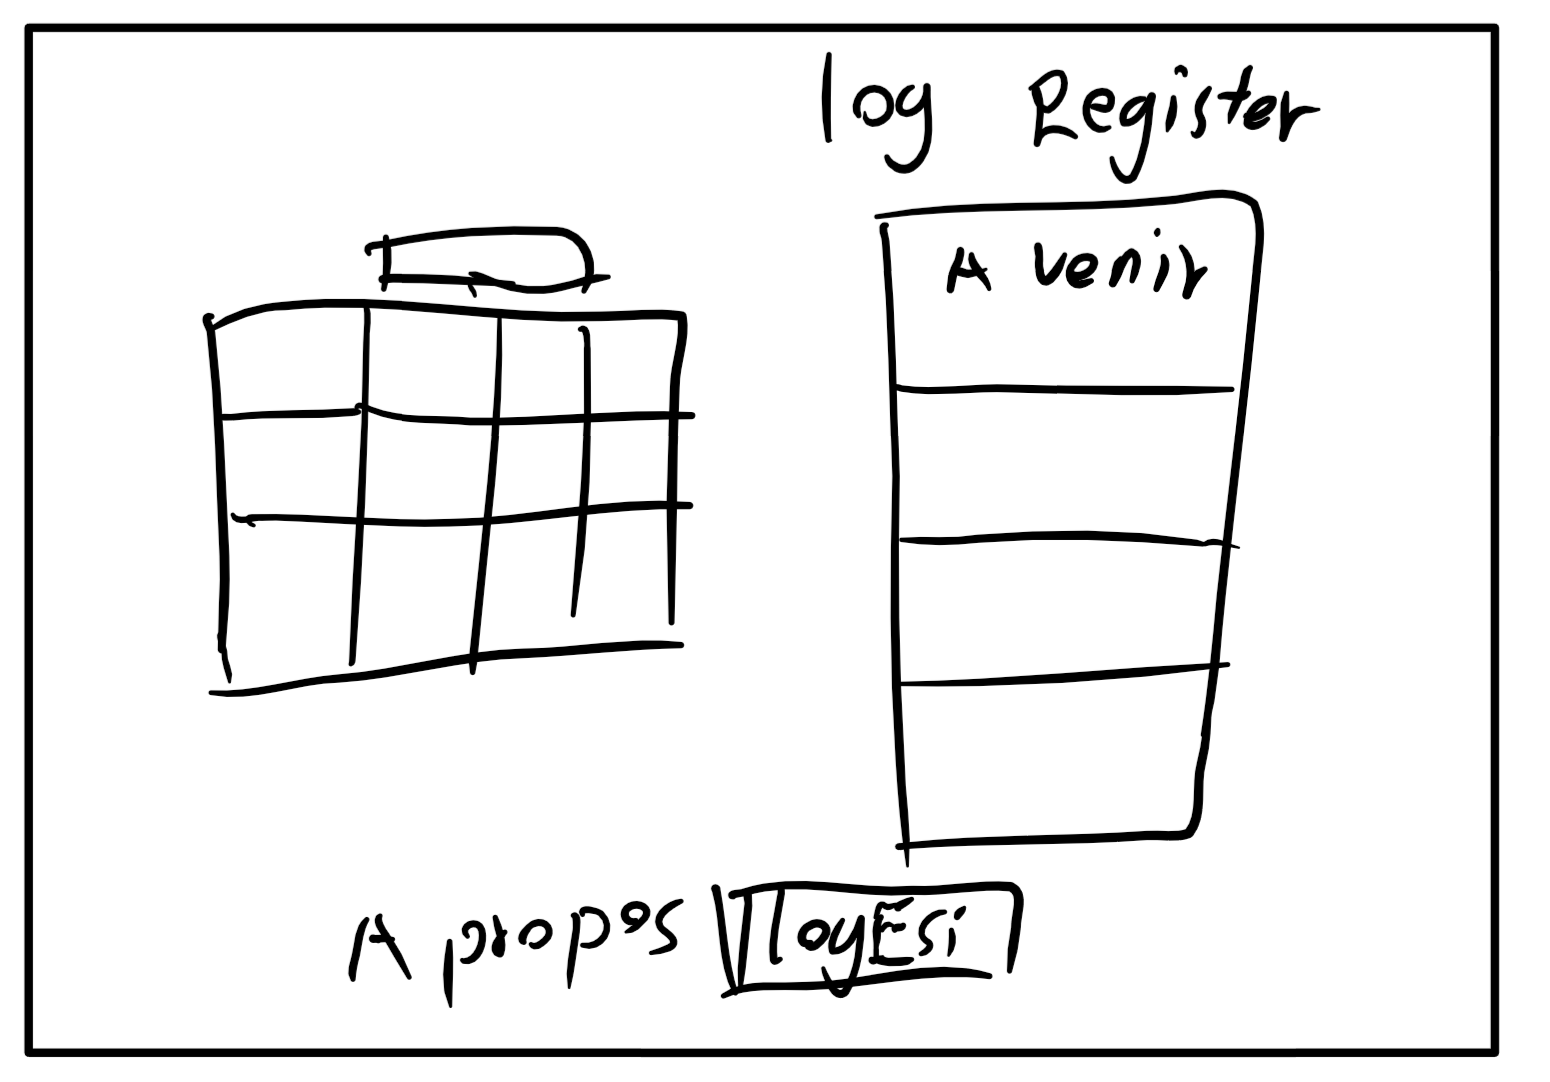 log Register
A venir
A propos logEsi